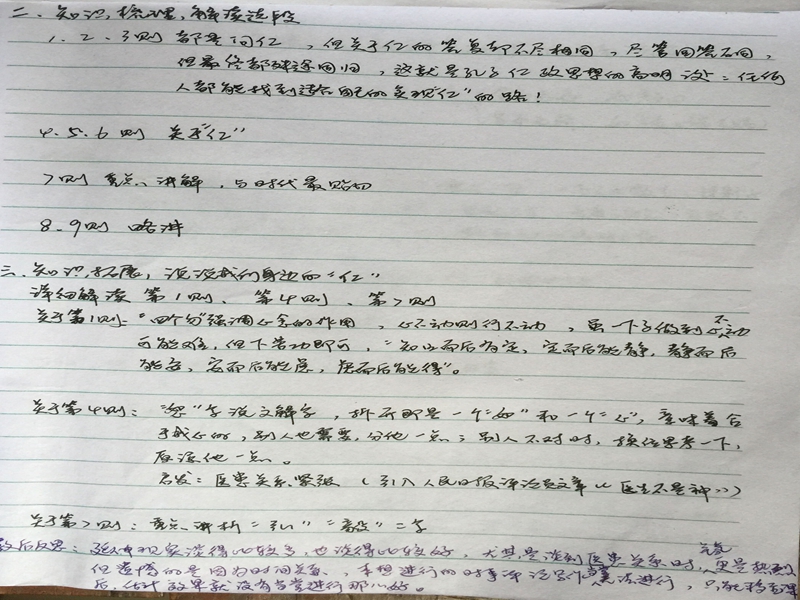 二、知识梳理，解读选段
1、2、3则 都是问仁，但关于仁的答复却不尽相同，尽管回答不同，
但最终都殊途同归，这就是孔子仁政思想的高明谈：任何
人都能找到适合自己的实现"仁"的路！
4、5、6则 关于"仁"
7则 重点讲解，与时代最贴切
8、9则 略讲
三、知识拓展，说说我们身边的"仁"
详细解读 第1则、第4则、第7则
关于第1则："四个勿"强调心念的作用，心不动则行不动，虽一下子做到心不动
可能难，但下苦功即可，"知止而后有定，定而后能静，静而后
能安，安而后能虑，虑而后能得"。
关于第4则："恕"字说文解字，拆开即是一个"如"和一个"心"，意味着合
于我心的，别人也需要，分他一点；别人不对时，换位思考一下，
原谅他一点。
启发：医患关系紧张（引入人民日报评论员文章《医生不是神》）
关于第7则：重点讲析"弘""毅"二字
教后反思：班上大家谈得比较多，也谈得比较好，尤其是谈到医患关系时，更是热烈
但遗憾的是因为时间关系，本想进行的时事评论写作无法进行，只能移至课
后，估计效果就没有当堂进行那么好。